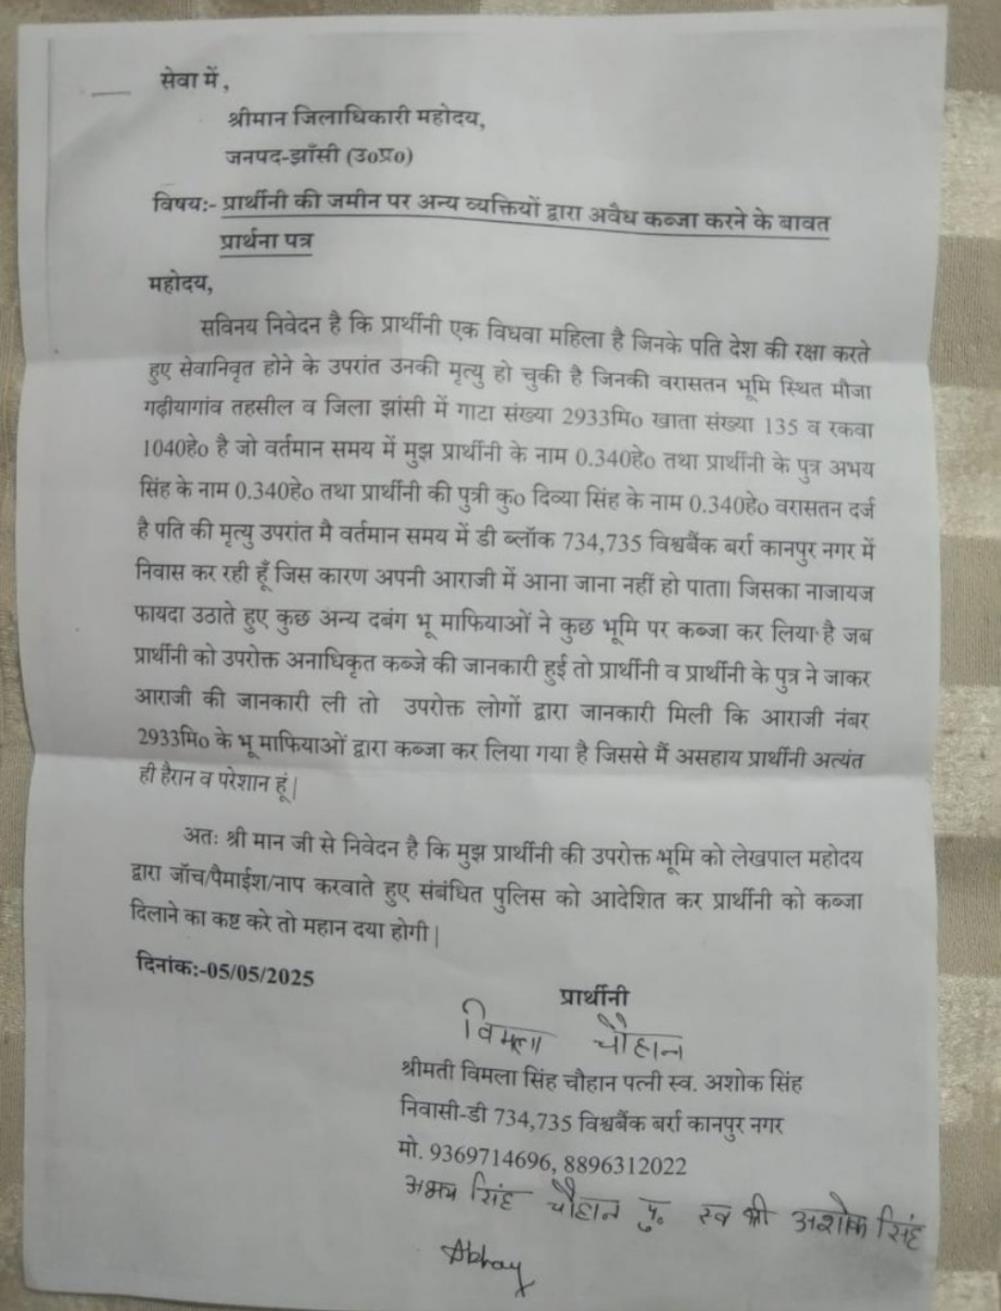 सेवा में,
श्रीमान जिलाधिकारी महोदय,
जनपद-झाँसी (उ0प्र0)
विषय:- प्रार्थीनी की जमीन पर अन्य व्यक्तियों द्वारा अवैध कब्जा करने के बावत
प्रार्थना पत्र
महोदय,
सविनय निवेदन है कि प्रार्थीनी एक विधवा महिला है जिनके पति देश की रक्षा करते
हुए सेवानिवृत होने के उपरांत उनकी मृत्यु हो चुकी है जिनकी वरासतन भूमि स्थित मौजा
गढ़ीयागांव तहसील व जिला झांसी में गाटा संख्या 2933मि0 खाता संख्या 135 व रकवा
1040हे0 है जो वर्तमान समय में मुझ प्रार्थीनी के नाम 0.340हे0 तथा प्रार्थीनी के पुत्र अभय
सिंह के नाम 0.340हे0 तथा प्रार्थीनी की पुत्री कु0 दिव्या सिंह के नाम 0.340हे0 वरासतन दर्ज
है पति की मृत्यु उपरांत मै वर्तमान समय में डी ब्लॉक 734,735 विश्वबैंक बर्रा कानपुर नगर में
निवास कर रही हूँ जिस कारण अपनी आराजी में आना जाना नहीं हो पाता। जिसका नाजायज
फायदा उठाते हुए कुछ अन्य दबंग भू माफियाओं ने कुछ भूमि पर कब्जा कर लिया है जब
प्रार्थीनी को उपरोक्त अनाधिकृत कब्जे की जानकारी हुई तो प्रार्थीनी व प्रार्थीनी के पुत्र ने जाकर
आराजी की जानकारी ली तो उपरोक्त लोगों द्वारा जानकारी मिली कि आराजी नंबर
2933मि0 के भू माफियाओं द्वारा कब्जा कर लिया गया है जिससे मैं असहाय प्रार्थीनी अत्यंत
ही हैरान व परेशान हूं|
अतः श्री मान जी से निवेदन है कि मुझ प्रार्थीनी की उपरोक्त भूमि को लेखपाल महोदय
द्वारा जॉच/पैमाईश/नाप करवाते हुए संबंधित पुलिस को आदेशित कर प्रार्थीनी को कब्जा
दिलाने का कष्ट करे तो महान दया होगी|
दिनांक:-05/05/2025
प्रार्थीनी
विमला चौहान
श्रीमती विमला सिंह चौहान पत्नी स्व. अशोक सिंह
निवासी-डी 734,735 विश्वबैंक बर्रा कानपुर नगर
मो. 9369714696, 8896312022
अभय सिंह चौहान पु. स्व श्री अशोक सिंह
Abhay